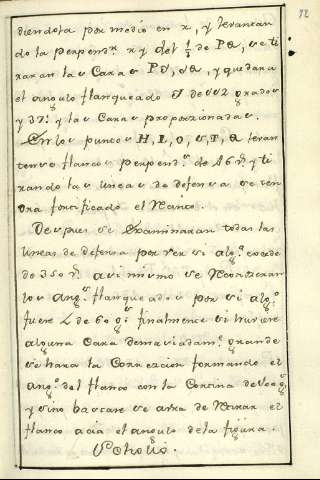 72
diendola por medio en x, y levantan
do la perpend.r x y del 1/3 de P Q, se ti
raran las Caras P y, y Q, y quedara
el angulo flanqueado de 112 grados
y 37.' y las Caras proporzionadas.
En los puntos H, L, O, S, T, Q levan
tense flancos perpend.s de 16 r.s y ti
rando las lineas de defensa se ten
dra fortificado el Blanco.
Despues se Examinaran todas las
lineas de defensa por ver si alg.a excede
de 350 r.s asi mismo se Reconoceran
los ang.s flanqueados por si alg.o
fuere de 60 g.s finalmente si huviere
alguna Cara demasiadam.te grande
se hara la Correczion formando el
ang.o del flanco con la Cortina de 100 g.s
y sino bastare se atra de Retirar el
flanco acia el angulo de la figura.
Scholio.